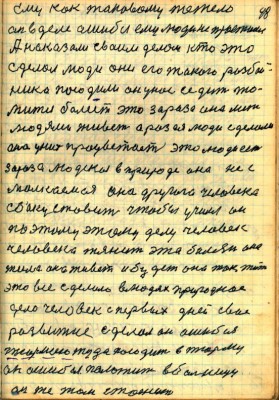 ему как таковому тяжело 98
он в деле ошибся ему люди не простили
А н сказал своим делом кто это
сделал люди они его такого разбой
ника посадили он у нас сидит то
мится болеет это зараза она меж
людями живет а разая люди сделали
она у них процветает это людская
зараза людская в природе она не с
она другого человека
сбоку ставит чтобы учился он
поэтому этому делу человек
человека тянет эта болезнь она
жила она живет и будет она так жить
это все сделало в людях природное
дело человек с первых дней свое
развитие сделал он ошибся
тюрьма туда посадит в тюрьму
он ошибся положит в больницу
он же там